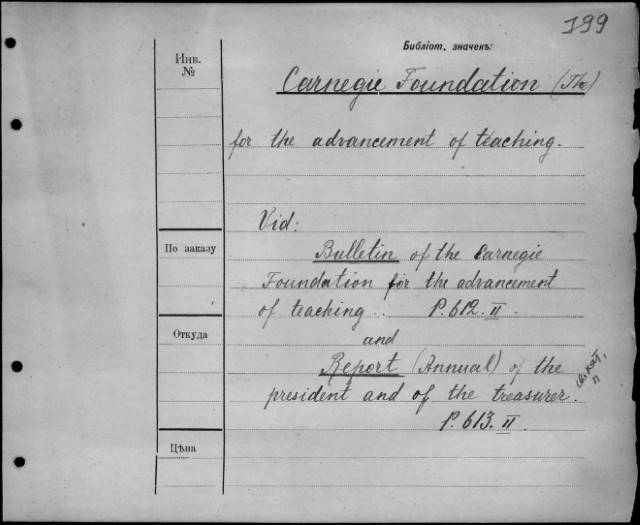 199
Библіот. значекъ:
Инв.
№
Carnegie Foundation (The)
for the advancement of teaching.
Vid:
По заказу
Bulletin of the Carnegie
Foundation for the advancement
of teaching. P. 612. II
Откуда
and
Report (Annual) of the
president and of the treasurer.
P. 613. II.
Цѣна